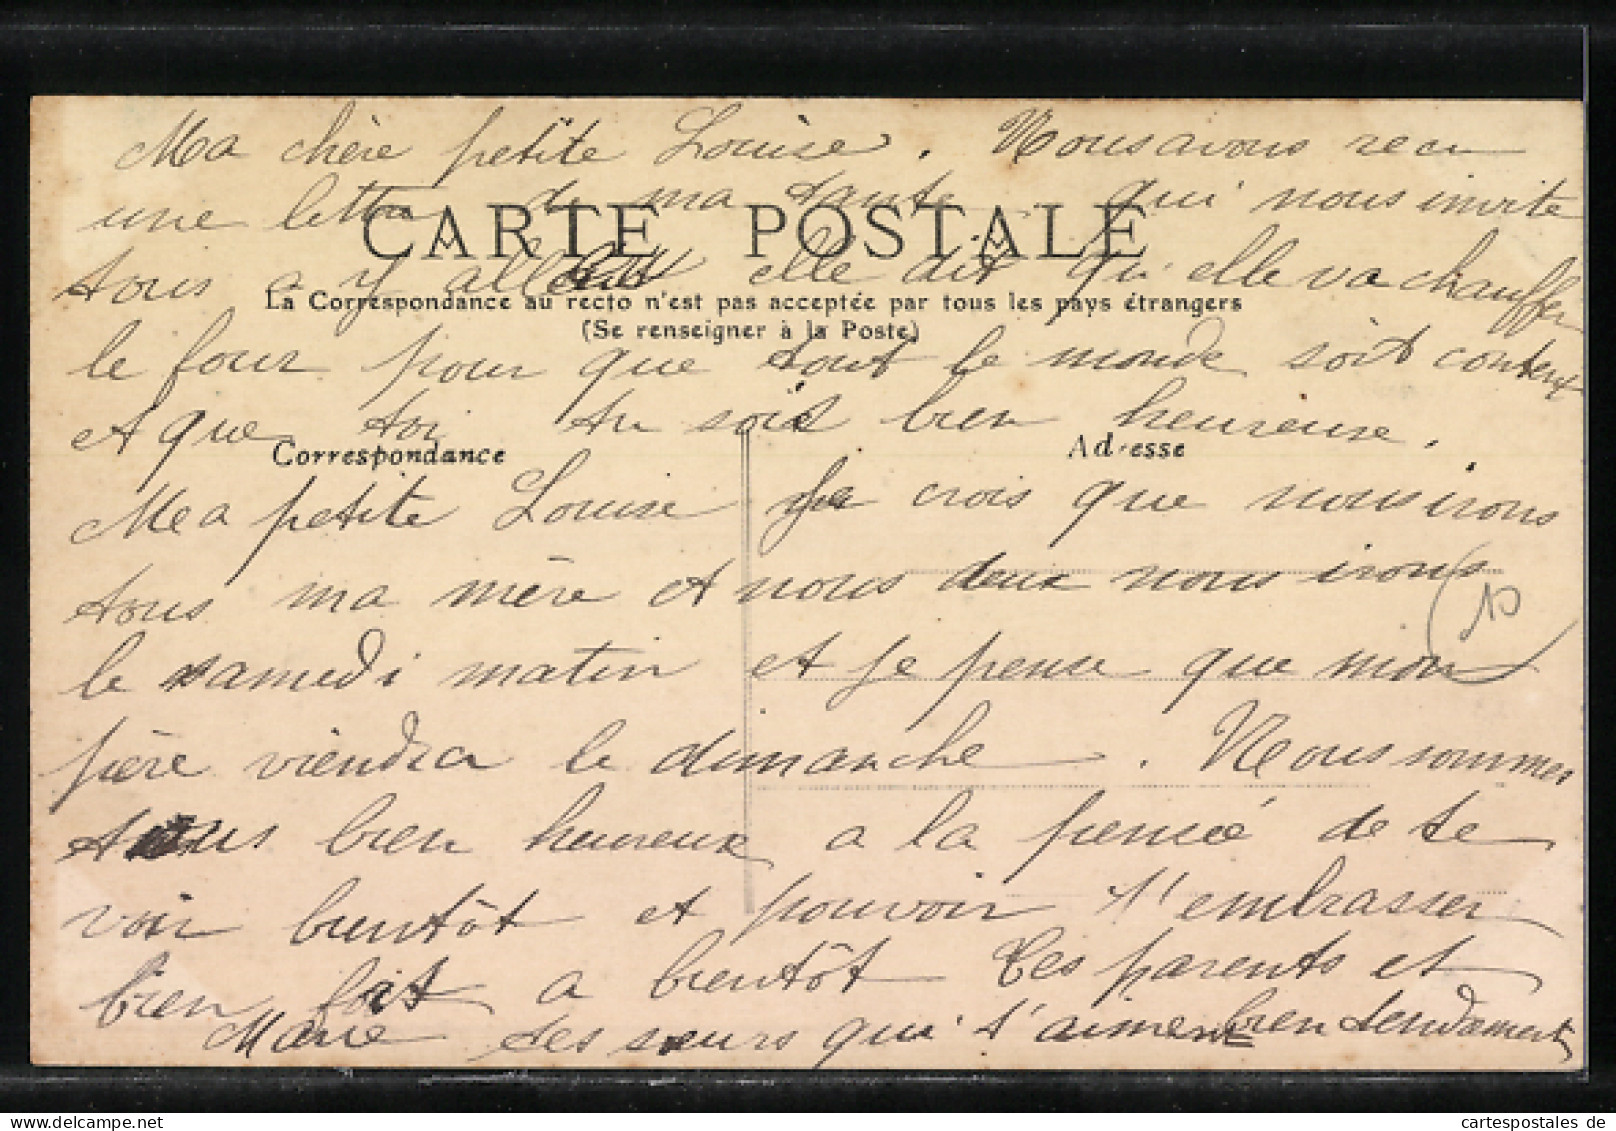 Ma chère petite Louise. Nous avons recu
une lettre de ma tante qui nous invite
CARTE POSTALE
tous a y aller elle dit qu'elle va chauffer
La Correspondance au recto n'est pas acceptée par tous les pays étrangers
(Se renseigner à la Poste)
le four pour que tout le monde soit content
et que toi tu sois bien heureuse.
Correspondance
Adresse
Ma petite Louise Je crois que nous irons
tous ma mère et nous deux nous irons
10
le samedi matin et je pense que mon
père viendra le dimanche. Nous sommes
tous bien heureux a la pensée de te
voir bientôt et pouvoir t'embrasser
bien fort a bientôt Tes parents et
Marie tes sœurs qui t'aiment bien tendrement
cartespostales de